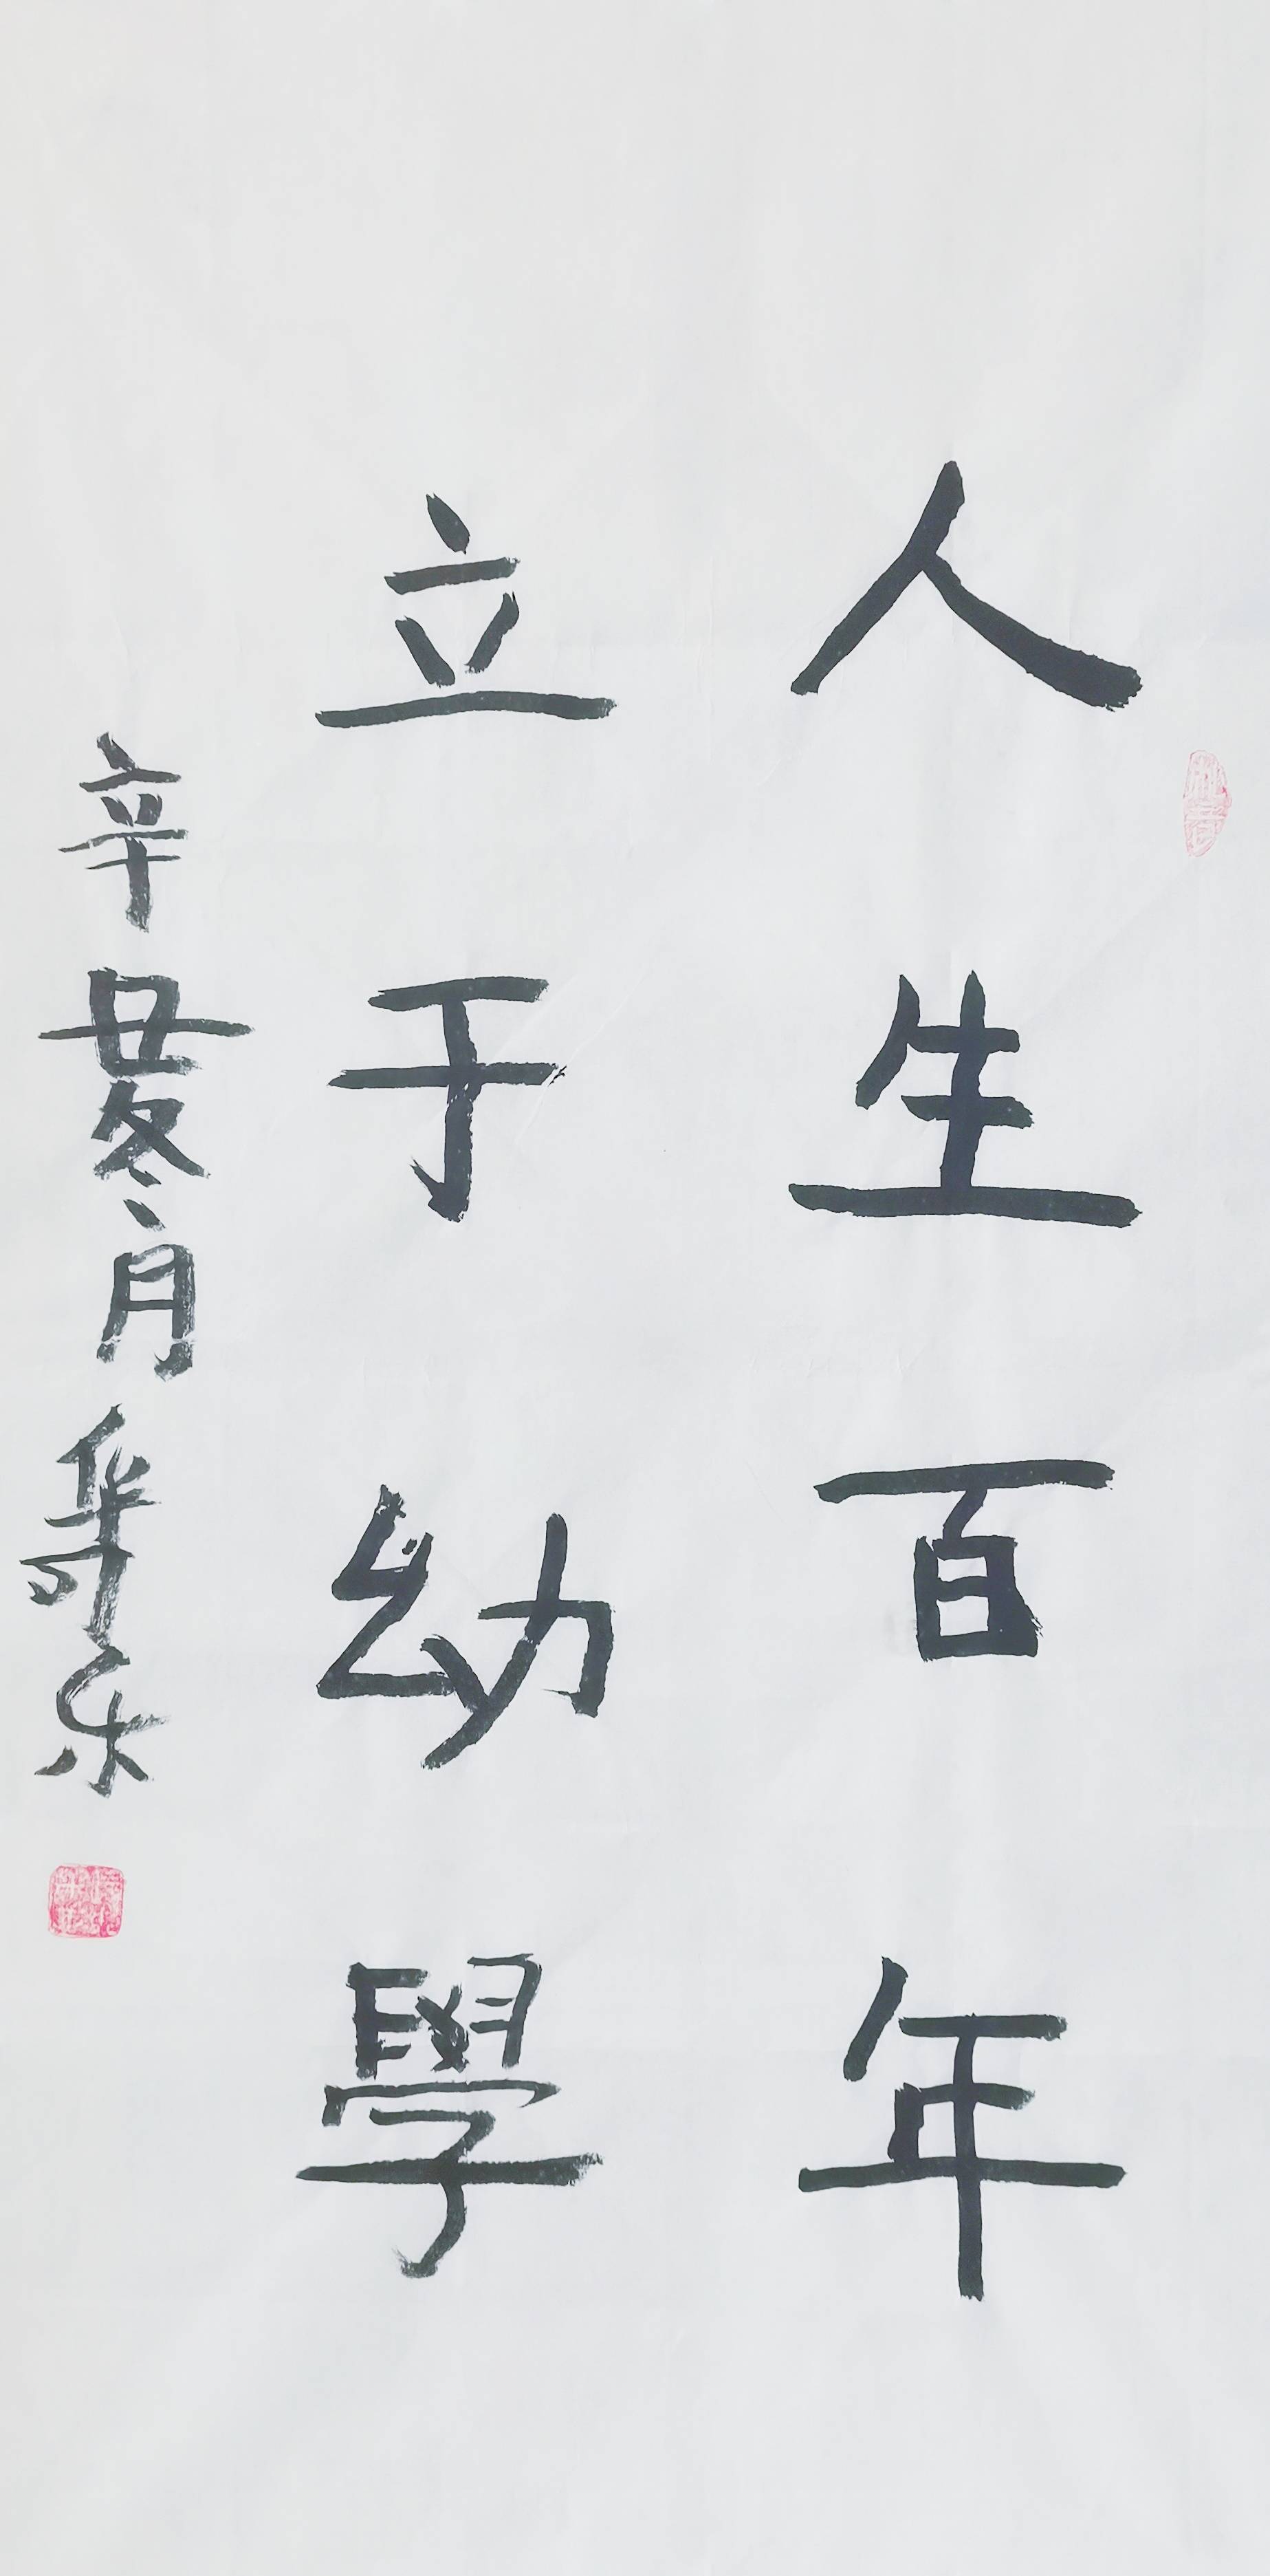 人生百年
立于幼學
辛丑冬月